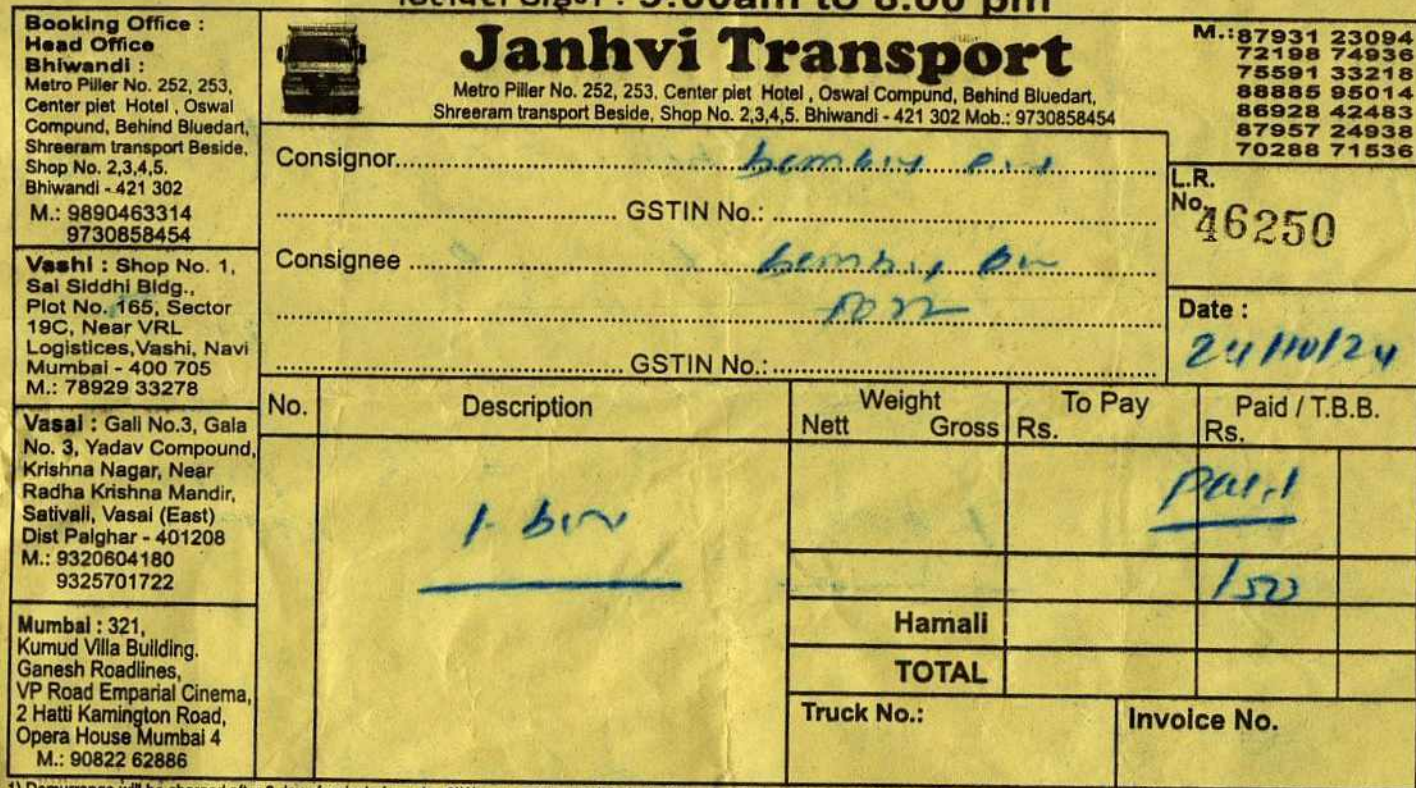 9:00am to 8:00 pm
Booking Office :
Head Office
Bhiwandi :
Metro Piller No. 252, 253,
Center piet Hotel , Oswal
Compund, Behind Bluedart,
Shreeram transport Beside,
Shop No. 2,3,4,5.
Bhiwandi - 421 302
M.: 9890463314
9730858454
Vashi : Shop No. 1,
Sai Siddhi Bldg.,
Plot No. 165, Sector
19C, Near VRL
Logistices,Vashi, Navi
Mumbai - 400 705
M.: 78929 33278
Vasai : Gali No.3, Gala
No. 3, Yadav Compound,
Krishna Nagar, Near
Radha Krishna Mandir,
Sativali, Vasai (East)
Dist Palghar - 401208
M.: 9320604180
9325701722
Mumbai : 321,
Kumud Villa Building.
Ganesh Roadlines,
VP Road Emparial Cinema,
2 Hatti Kamington Road,
Opera House Mumbai 4
M.: 90822 62886
Janhvi Transport
Metro Piller No. 252, 253, Center piet Hotel , Oswal Compund, Behind Bluedart,
Shreeram transport Beside, Shop No. 2,3,4,5. Bhiwandi - 421 302 Mob.: 9730858454
M.:87931 23094
72198 74936
75591 33218
88885 95014
86928 42483
87957 24938
70288 71536
Consignor
GSTIN No.:
Consignee
GSTIN No.:
L.R.
No. 46250
Date :
24/10/24
No. Description Weight To Pay Paid / T.B.B.
Nett Gross Rs. Rs.
Paid
Hamali
TOTAL
Truck No.: Invoice No.